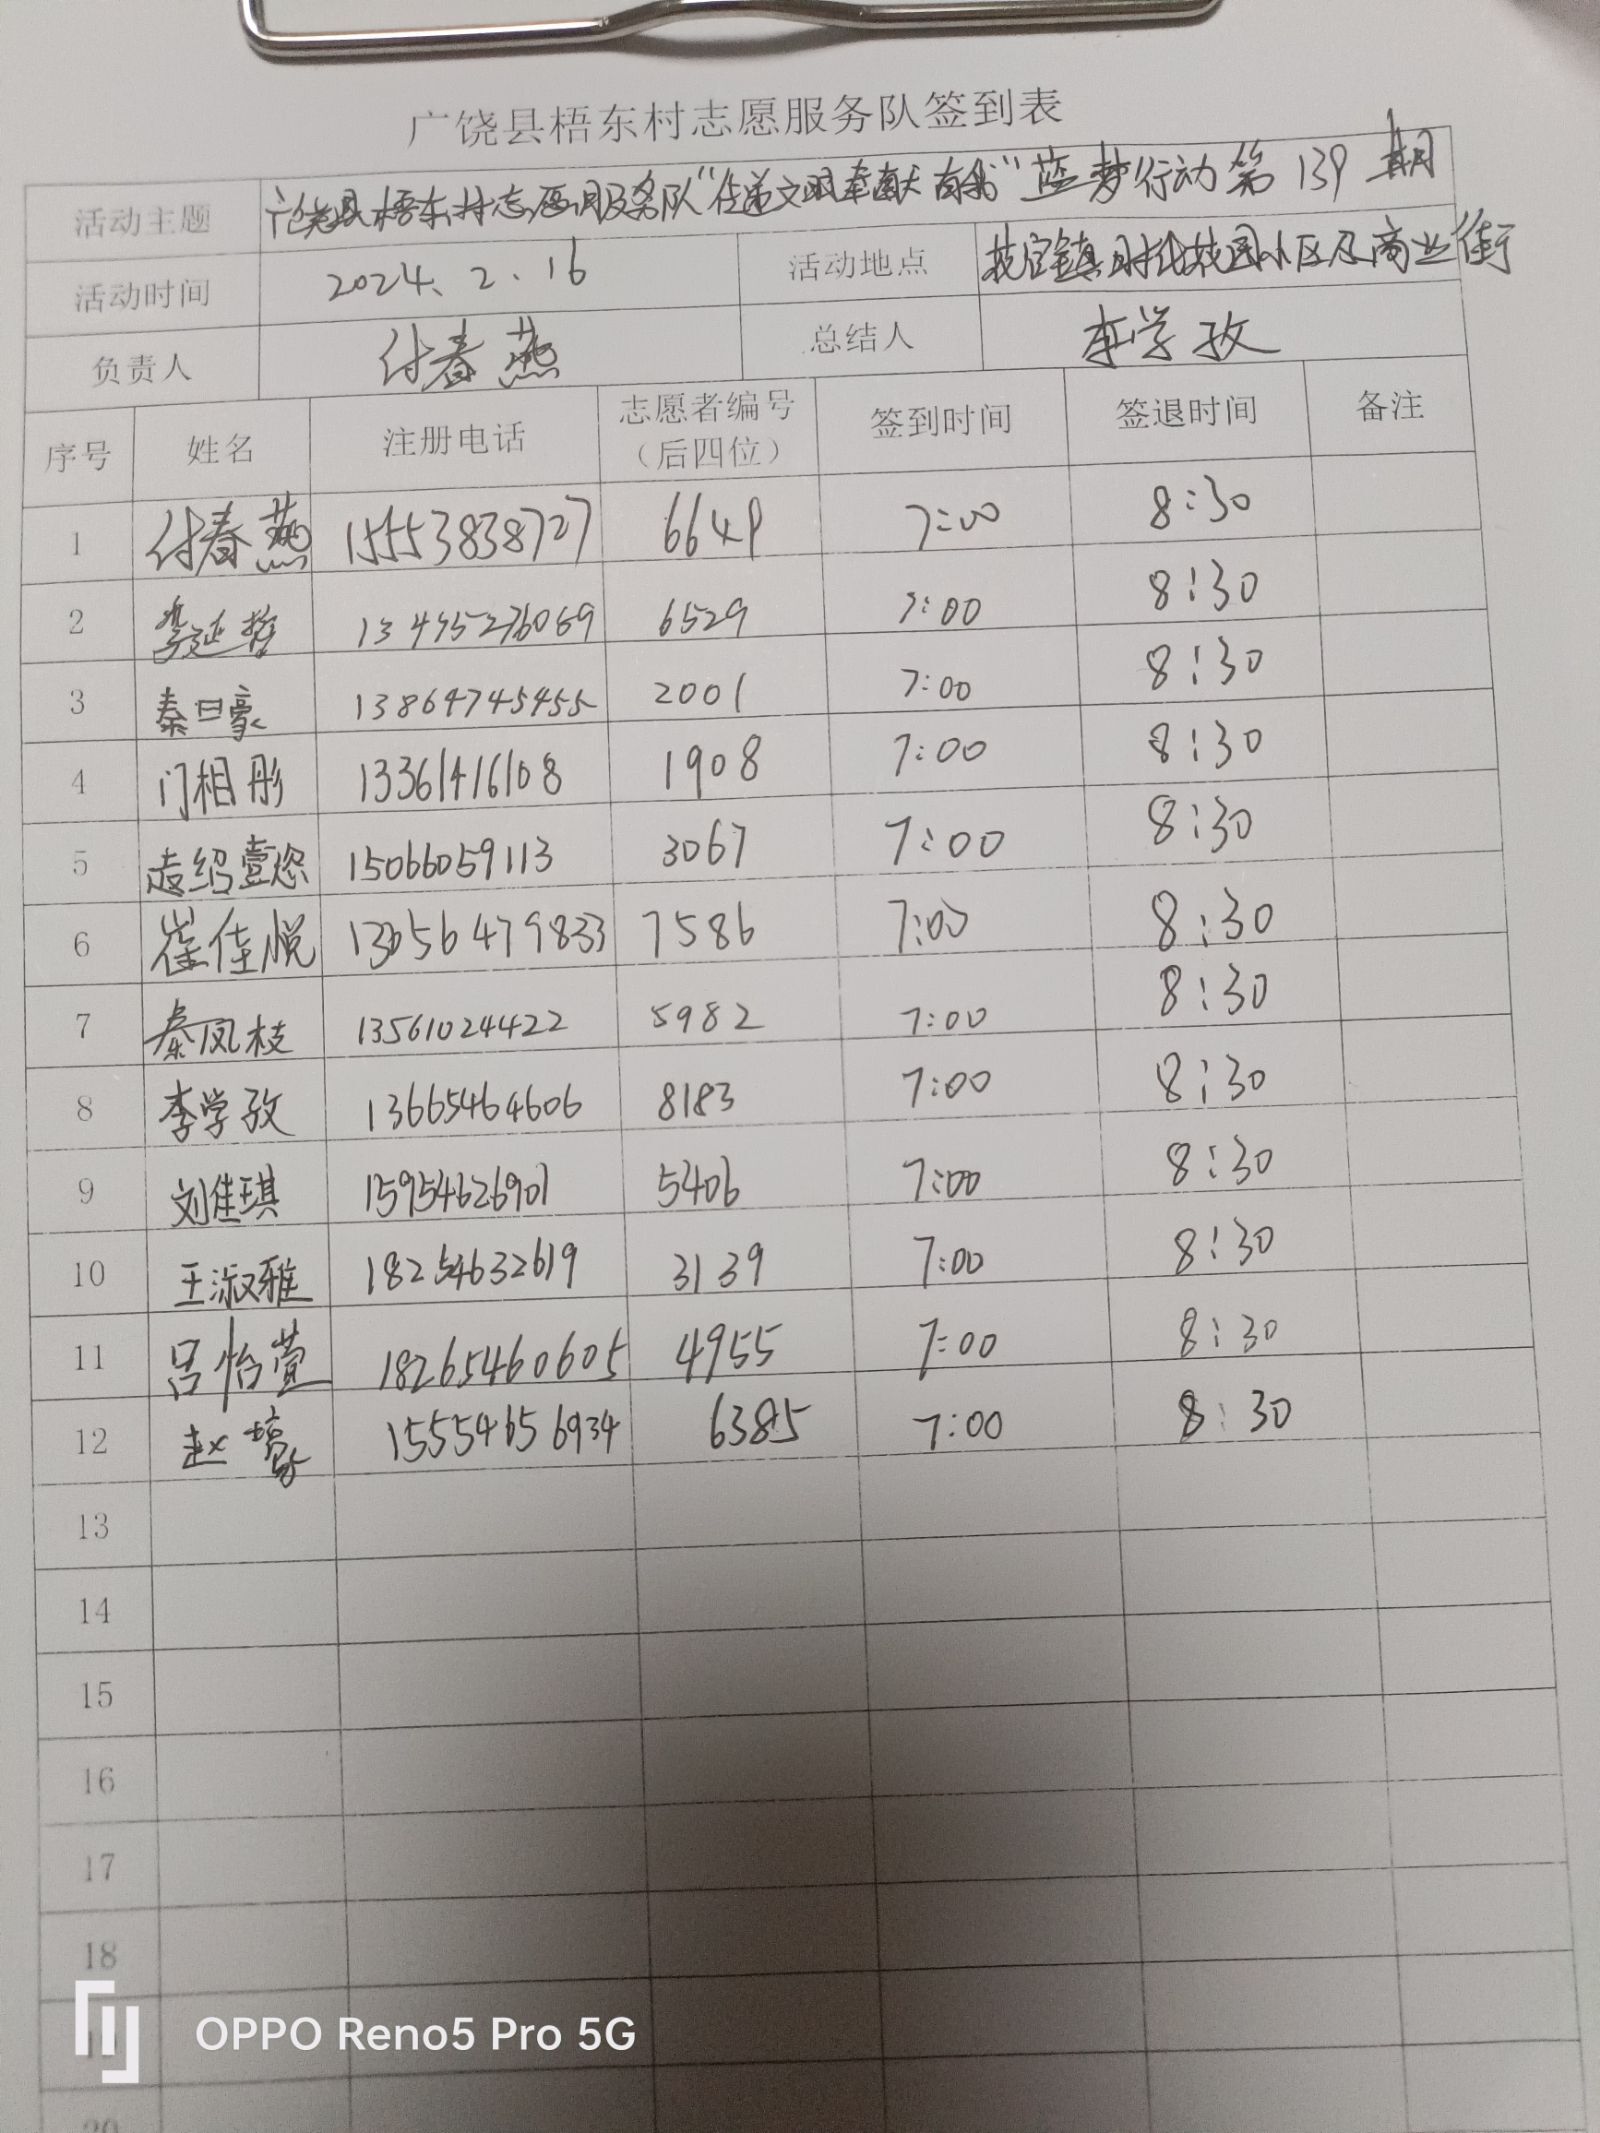 广饶县梧东村志愿服务队签到表
活动主题 广饶县梧东村志愿服务队“传递文明奉献自我”蓝梦行动第139期
活动时间 2024.2.16 活动地点 花官镇时代花园小区及商业街
负责人 付春燕 总结人 李学孜
序号 姓名 注册电话 志愿者编号（后四位） 签到时间 签退时间 备注
1 付春燕 15553838727 6649 7:00 8:30
2 李延哲 6529 7:00 8:30
3 秦曰豪 13864745455 2001 7:00 8:30
4 门相彤 13361416108 1908 7:00 8:30
5 15066059113 3067 7:00 8:30
6 崔佳悦 7586 7:00 8:30
7 秦凤枝 13561024422 5982 7:00 8:30
8 李学孜 13665464606 8183 7:00 8:30
9 刘佳琪 15954626901 5406 7:00 8:30
10 王淑雅 18254632619 3139 7:00 8:30
11 吕怡萱 18265460605 4955 7:00 8:30
12 赵壕 15554656934 6385 7:00 8:30
13
14
15
16
17
18
19
20
OPPO Reno5 Pro 5G